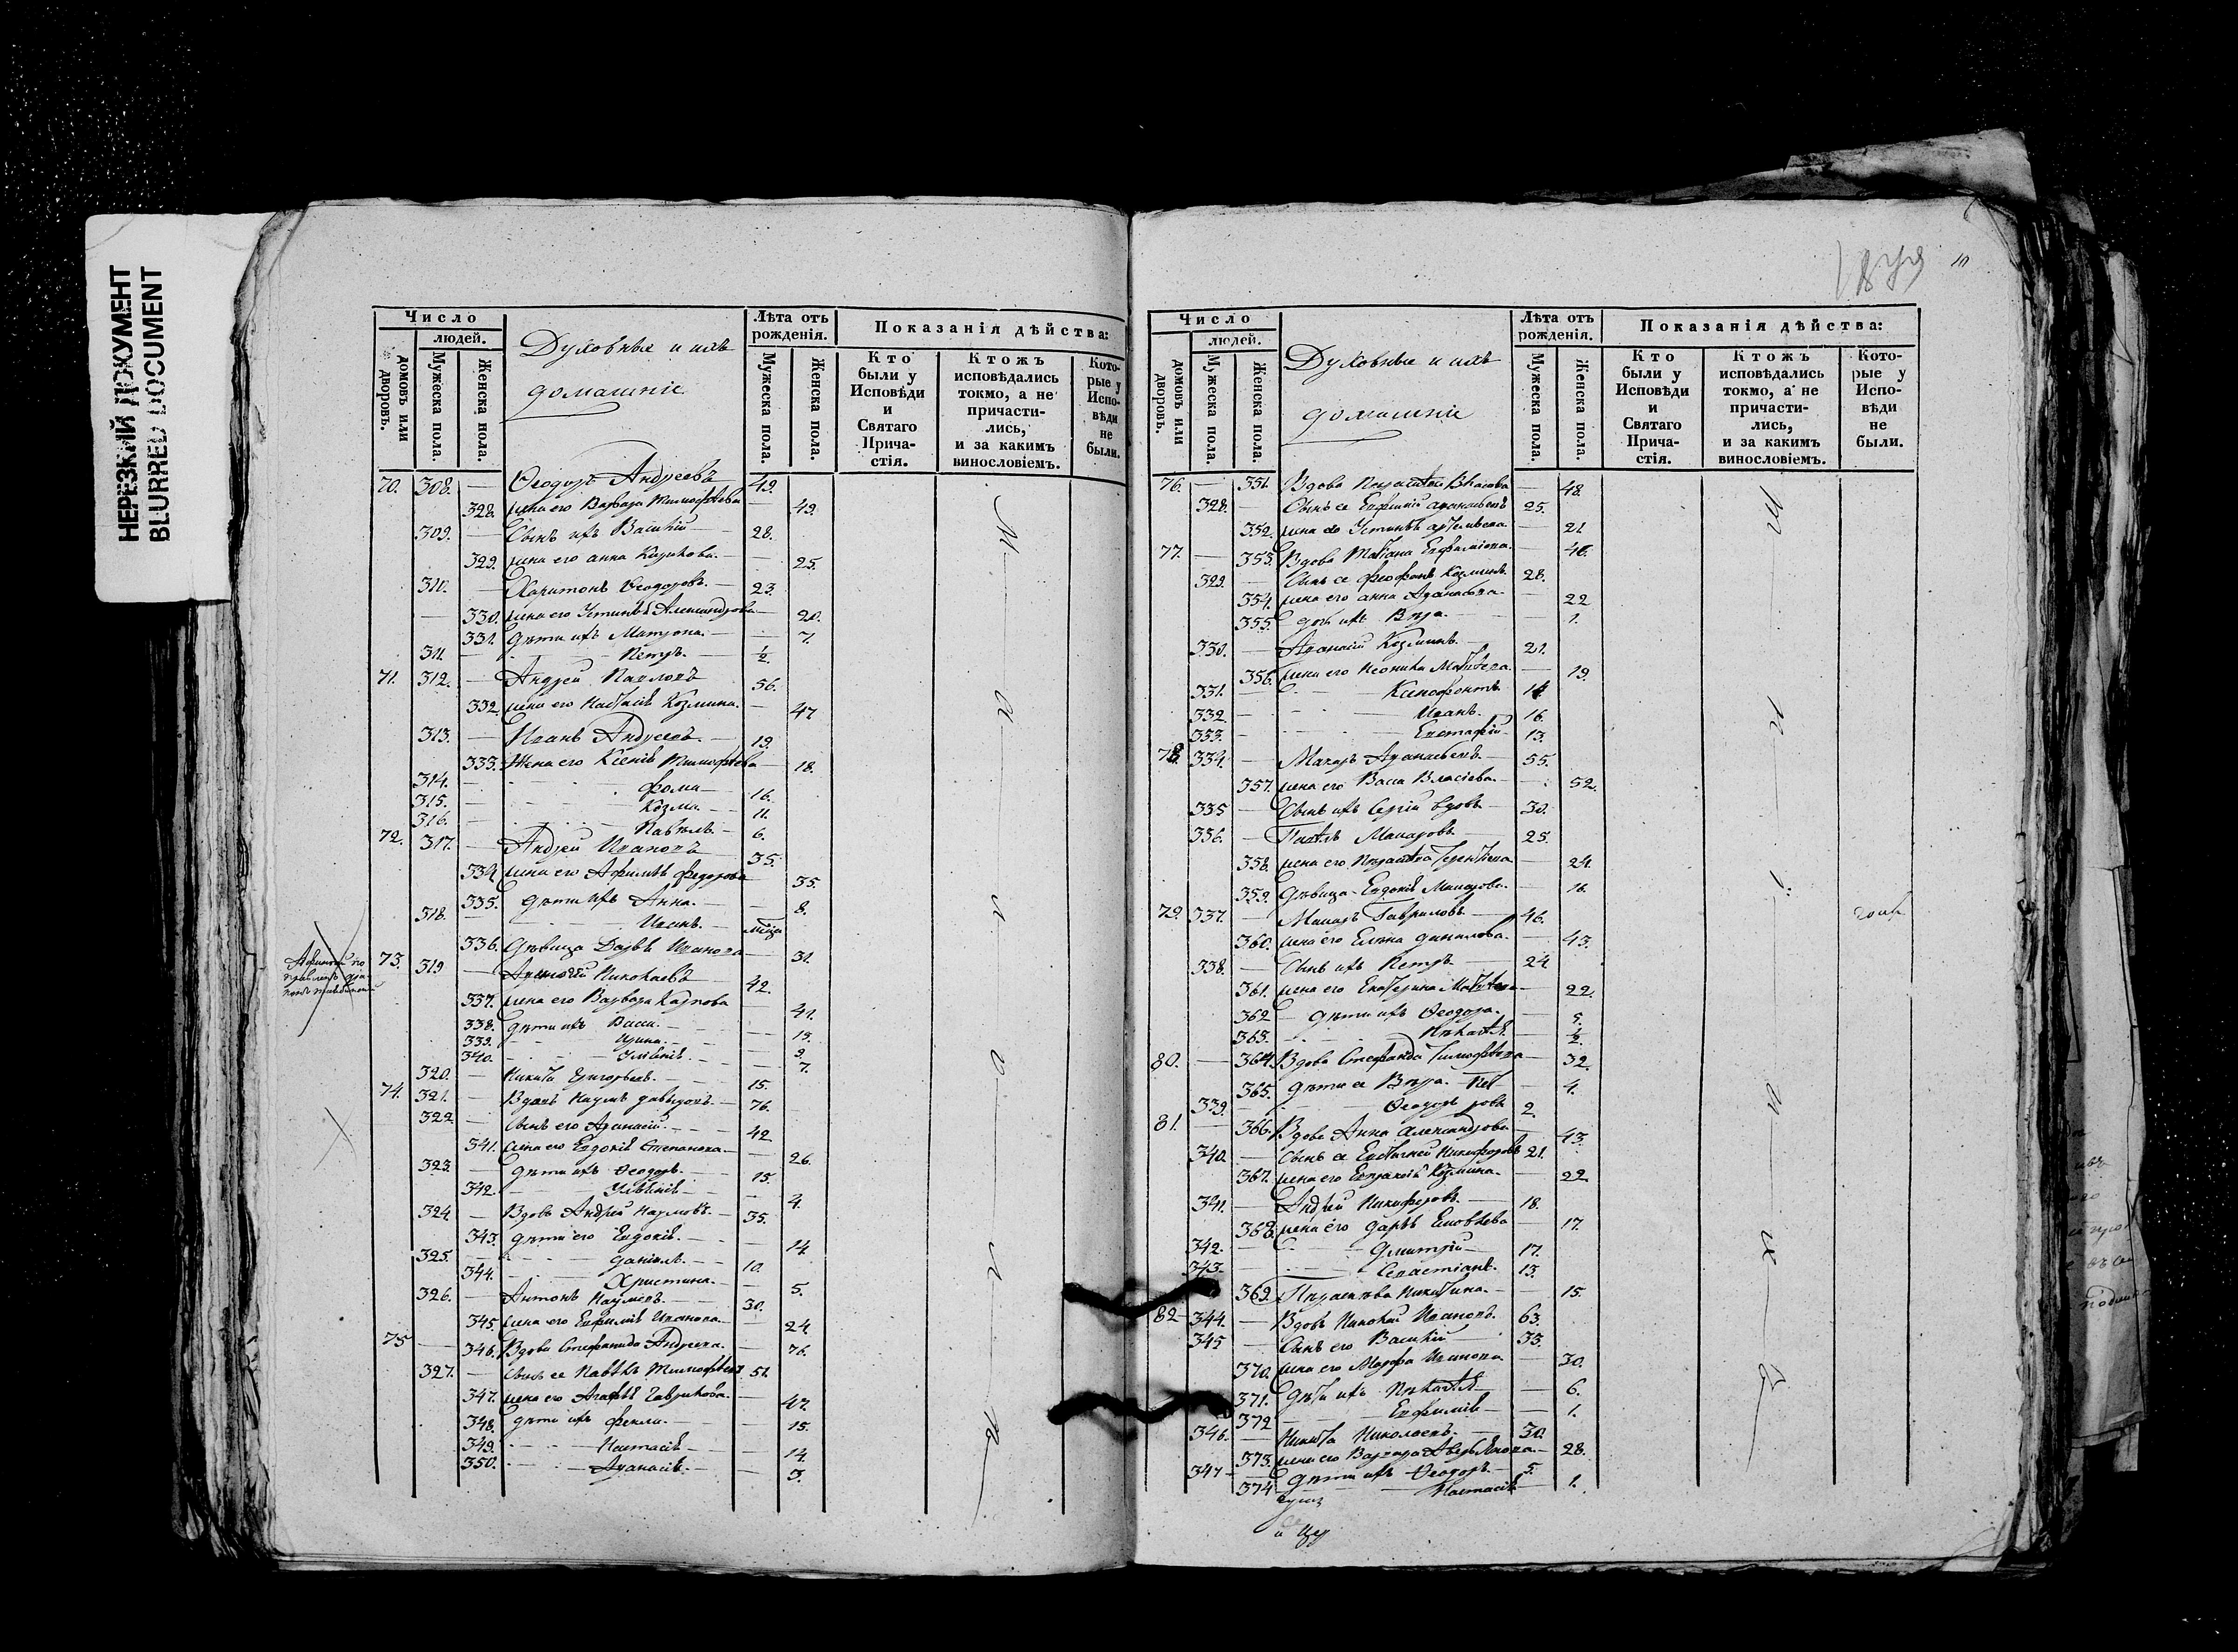 НЕРЕЗКИЙ ДОКУМЕНТ
BLURRED DOCUMENT
Число
людей.
домовъ или дворовъ.
Мужеска пола.
Женска пола.
Духовные и ихъ
домашніе
Лѣта отъ рожденія.
Мужеска пола.
Женска пола.
Показанія дѣйства:
Кто были у Исповѣди и Святаго Причастія.
Ктожъ исповѣдались токмо, а не причастились, и за какимъ винословіемъ.
Которые у Исповѣди не были.
70. 308. — Ѳеодоръ Андреевъ 49.
328. жена его Варвара Тимофѣева — 49.
309. — Сынъ ихъ Василій — 28.
329. жена его анна — 25.
310. — Харитонъ Ѳеодоровъ — 23.
330. жена его Устинья Александрова — 20.
331. Дѣти ихъ Матрона — 7.
311. — Петръ — ½.
71. 312. — Андрей Павловъ 56.
332. жена его Настасія Козмина. — 47
313. — Иванъ Андреевъ — 19.
333. Жена его Ксенія Тимофѣева — 18.
314. — Фома — 16.
315. — Козма — 11.
316. — Павелъ — 6.
72. 317. — Андрей Ивановъ 35.
334. жена его Афимья Федорова 35.
335. Дѣти ихъ Анна. — 8.
318. — Иванъ.
336. Дѣвица Дарья Иванова — 31.
73. 319 — Николаевъ 42.
337. жена его Варвара Карпова 41.
338. дѣти ихъ Васса. — 13.
339. — Ирина. — 9.
340. — Улянія. — 7.
320. — Никита Григорьевъ. — 15.
74. 321. — Вдовъ Наумъ Давыдовъ. — 76.
322. — Сынъ его Аѳанасій — 42
341. жена его Евдокія Степанова — 26.
323. — дѣти ихъ Ѳеодоръ. — 15.
342. — Улянія — 4.
324. — Вдовъ Андрей Наумовъ. — 35.
343. дѣти его Евдокія. — 14.
325. — Даніилъ. — 10.
344. — Христина. — 5.
326. — Антонъ Наумовъ. — 30.
345. жена его Евфимія Иванова. — 24.
75 346. Вдова Стефанида Андреева. — 76.
327. — Сынъ ее Павелъ Тимофѣевъ 51.
347. жена его Агафья Гаврилова. — 47.
348. дѣти ихъ Фекла. — 15.
349. — Настасія — 14.
350. — Аѳанасія. — 3.
Число
людей.
домовъ или дворовъ.
Мужеска пола.
Женска пола.
Духовные и ихъ
домашніе
Лѣта отъ рожденія.
Мужеска пола.
Женска пола.
Показанія дѣйства:
Кто были у Исповѣди и Святаго Причастія.
Ктожъ исповѣдались токмо, а не причастились, и за какимъ винословіемъ.
Которые у Исповѣди не были.
76. — 351. Вдова Параскева Власова — 48.
328. — Сынъ ее 25.
352. жена его Устинья — 21.
77. — 353. Вдова Татіана — 46.
329. — Сынъ ее Феофанъ Козминъ. 28.
354. жена его анна — 22
355. дочь ихъ Вѣра — 1.
330. — Аѳанасій Козминъ. — 21.
356. жена его Матвѣева — 19.
331. — Ксенофонтъ
332. — Иванъ. — 16.
333. — Евстафій — 13.
78. 334. — Макаръ Аѳанасьевъ — 55.
357. жена его Васса Власіева. — 52.
335 — Сынъ ихъ Сергій вдовъ — 30.
336. — Павелъ Макаровъ — 25.
358. жена его Параскева Терентьева — 24.
359. Дѣвица Евдокія Макарова. — 16.
79. 337. — Макаръ Гавриловъ — 46.
360. жена его Елена Данилова. — 43.
338. — Сынъ ихъ Петръ. — 24
361. жена его Екатерина Матвѣева — 22.
362 — дѣти ихъ Ѳеодора. — 5.
363. — Пелагѣя. — ½.
80. — 364. Вдова Стефанида Тимофѣева — 32.
365. дѣти ее Вѣра. — 4.
339. — Ѳеодоръ 2.
81. — 366. Вдова Анна Александрова — 43.
340. — Сынъ ее Никифоровъ 21.
367. жена его Козмина. — 22
341. — Андрей Никифоровъ — 18.
368. жена его Дарья — 17.
342. — Дмитрій — 17.
343. — Севастіанъ. — 13.
369. Параскева Никитина. — 15.
82 344. — Вдовъ Николай Ивановъ. 63.
345 — Сынъ его Василій — 33.
370. жена его Марфа Иванова — 30.
371. Дѣти ихъ Пелагѣя — 6.
372 — Евфимія — 1.
346. — Никита Николаевъ. — 30.
373. жена его Варвара — 28.
347 — дѣти ихъ Ѳеодоръ. — 5.
374 — Настасія — 1.